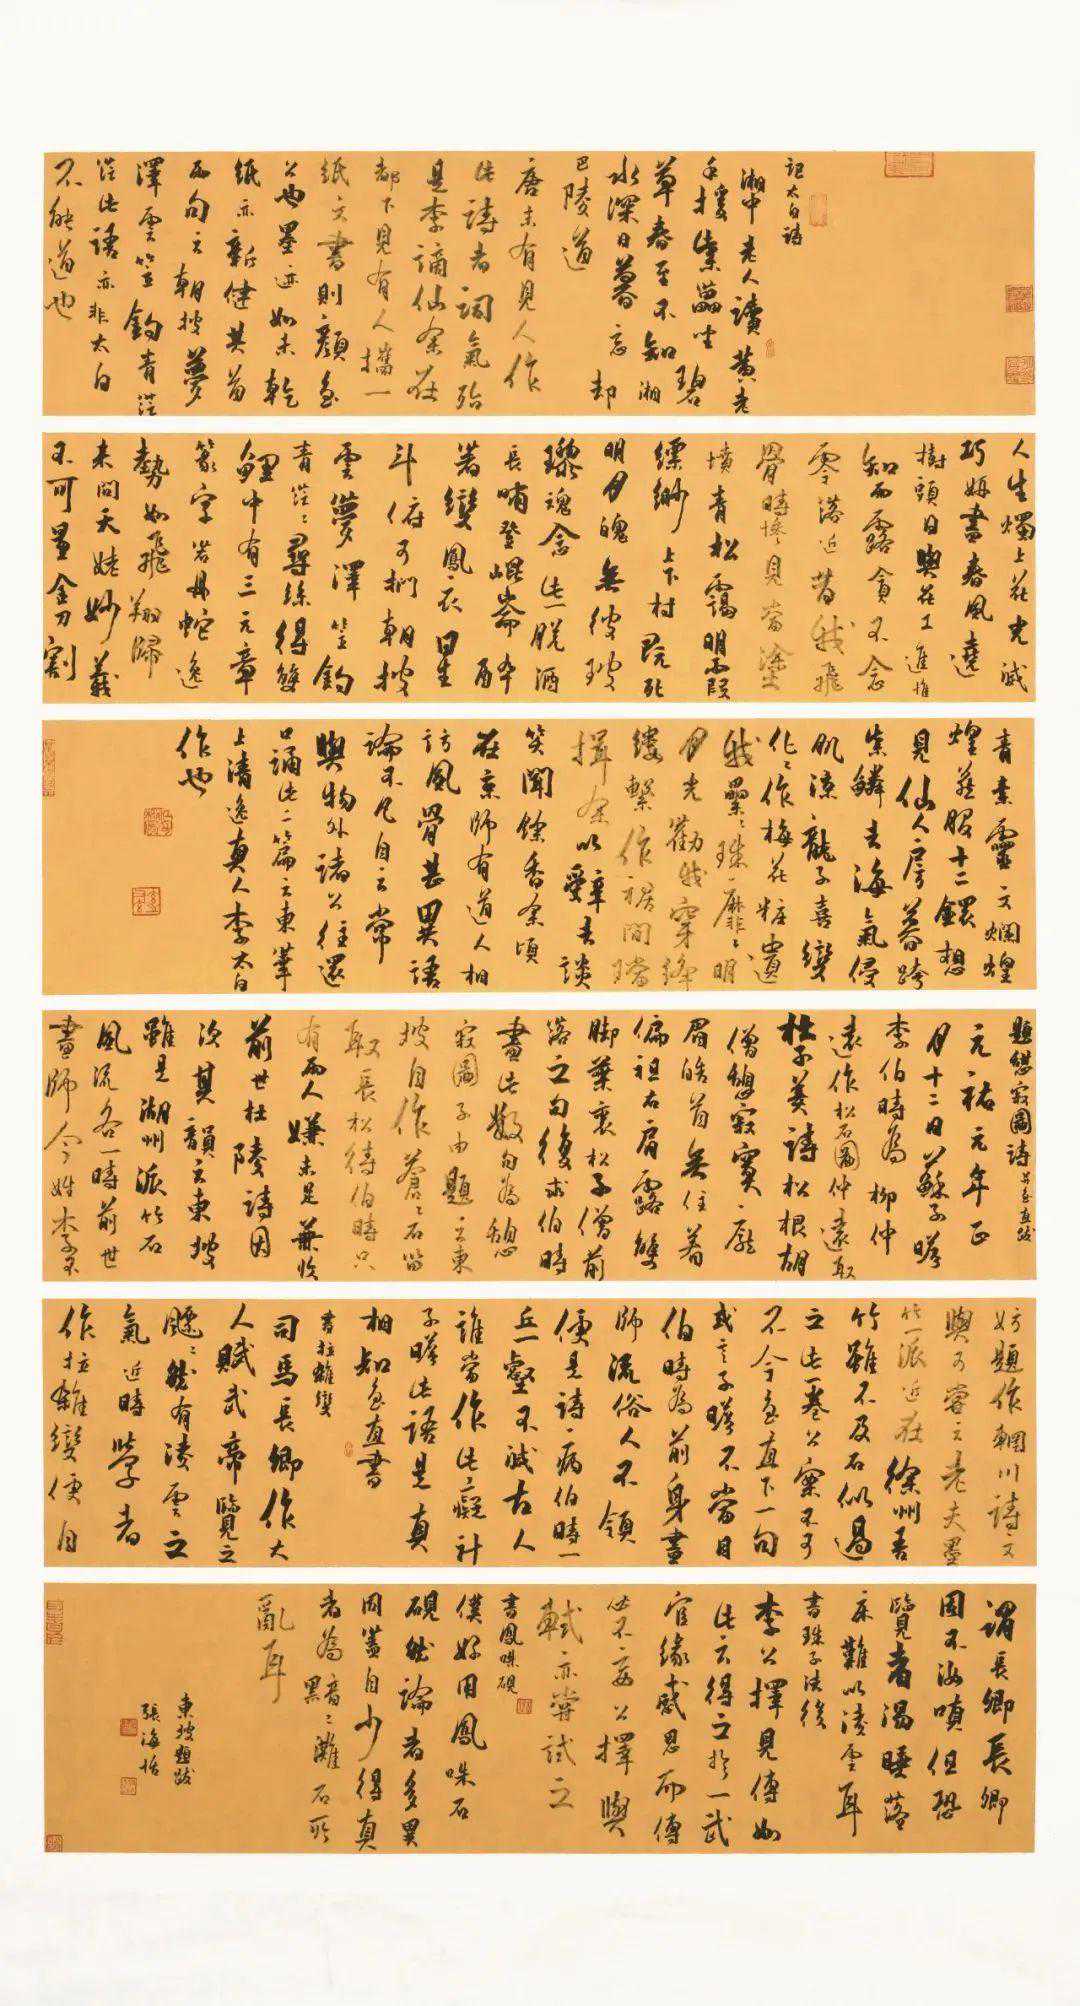 記太白詩
湘中老人讀黃老
手援紫藟坐碧
草春至不知湘
水深日暮忘却
巴陵道
唐末有見人作
此詩者詞氣殆
是李謫仙余在
都下見有人攜一
紙文書則顏魯
公也墨迹如未乾
紙亦新健其首
兩句云朝披夢
澤雲笠釣青茫茫
此語亦非太白
不能道也
人生燭上花光滅
巧妍盡春風遶
樹頭日與花工進惟
知雨露貪不念
零落近昔我飛
骨時慘見當塗
墳青松靄明霞
縹緲上下村既死
明月魄無彼玻
瓈魂念此一脫酒
長嘯登崑崙醉
著鸞鳳衣星
斗俯可捫朝披
雲夢澤笠釣
青茫茫尋絲得雙
鯉中有三元章
篆字若丹蛇逸
勢如飛翔歸
來問天姥妙義
不可量金刀割
青素靈文爛煌
煌燕服十二鐶想
見仙人房暮跨
紫鱗去海氣侵
肌涼龍子喜變
化化作梅花粧遺
我纍纍珠靡靡明
月光勸我穿絳
縷繫作裾間璫
揖余以辭去談
笑聞餘香余頃
在京師有道人相
訪風骨甚異語
論不凡自云常
與物外諸公往還
口誦此二篇云東華
上清逸真人李太白
作也
題憩寂圖詩并魯直跋
元祐元年正
月十二日蘇子瞻
李伯時為柳仲
遠作松石圖仲遠取
杜子美詩松根胡
僧憩寂寞龐
眉皓首無住著
偏袒右肩露雙
脚葉裏松子僧前
落之句復求伯時
畫此數句為憩
寂圖子由題云東
坡自作蒼蒼石留
取長松待伯時只
有兩人嫌未足兼收
前世杜陵詩因
次其韻云東坡
雖是湖州派竹石
風流各一時前世
畫師今姓李不
妨題作輞川詩文
與可嘗云老夫墨
竹一派近在徐州吾
竹雖不及石似過
之此一卷公案不可
不令魯直下一句
或言子瞻不當目
伯時為前身畫
師流俗人不領
便是詩病伯時一
丘一壑不減古人
誰當作此癡計
子瞻此語是真
相知魯直書
書拉雜變
司馬長卿作大
人賦武帝覽之
飄飄然有凌雲之
氣近時學者
作拉雜變便自
謂長卿長卿
固不汝嗔但恐
覽者渴睡落
床難以凌雲耳
書珠子法後
李公擇見傳如
此云得之於一武
官緣感恩而傳
必不妄公擇與
軾亦嘗試之
書鳳咮硯
僕好用鳳咮石
硯然論者多異
同蓋自少得真
者為黯黯灘石所
亂耳
東坡題跋
張海怡